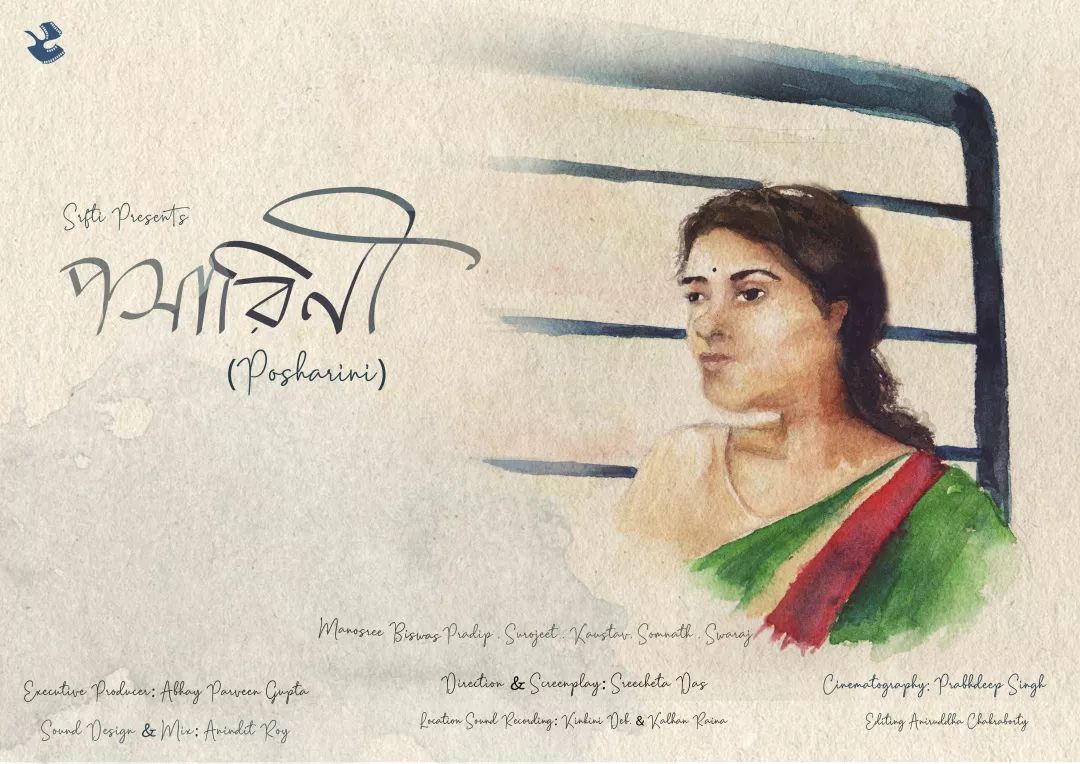 Srfti Presents
পসারিনী
(Posharini)
Manosree Biswas Pradip . Surojeet . Kaustav. Somnath . Swaraj
Executive Producer: Abhay Parveen Gupta
Direction & Screenplay: Sreecheta Das
Cinematography: Prabhdeep Singh
Sound Design & Mix: Anindit Roy
Location Sound Recording: Kinkini Deb. & Kalhan Raina
Editing Aniruddha Chakraborty